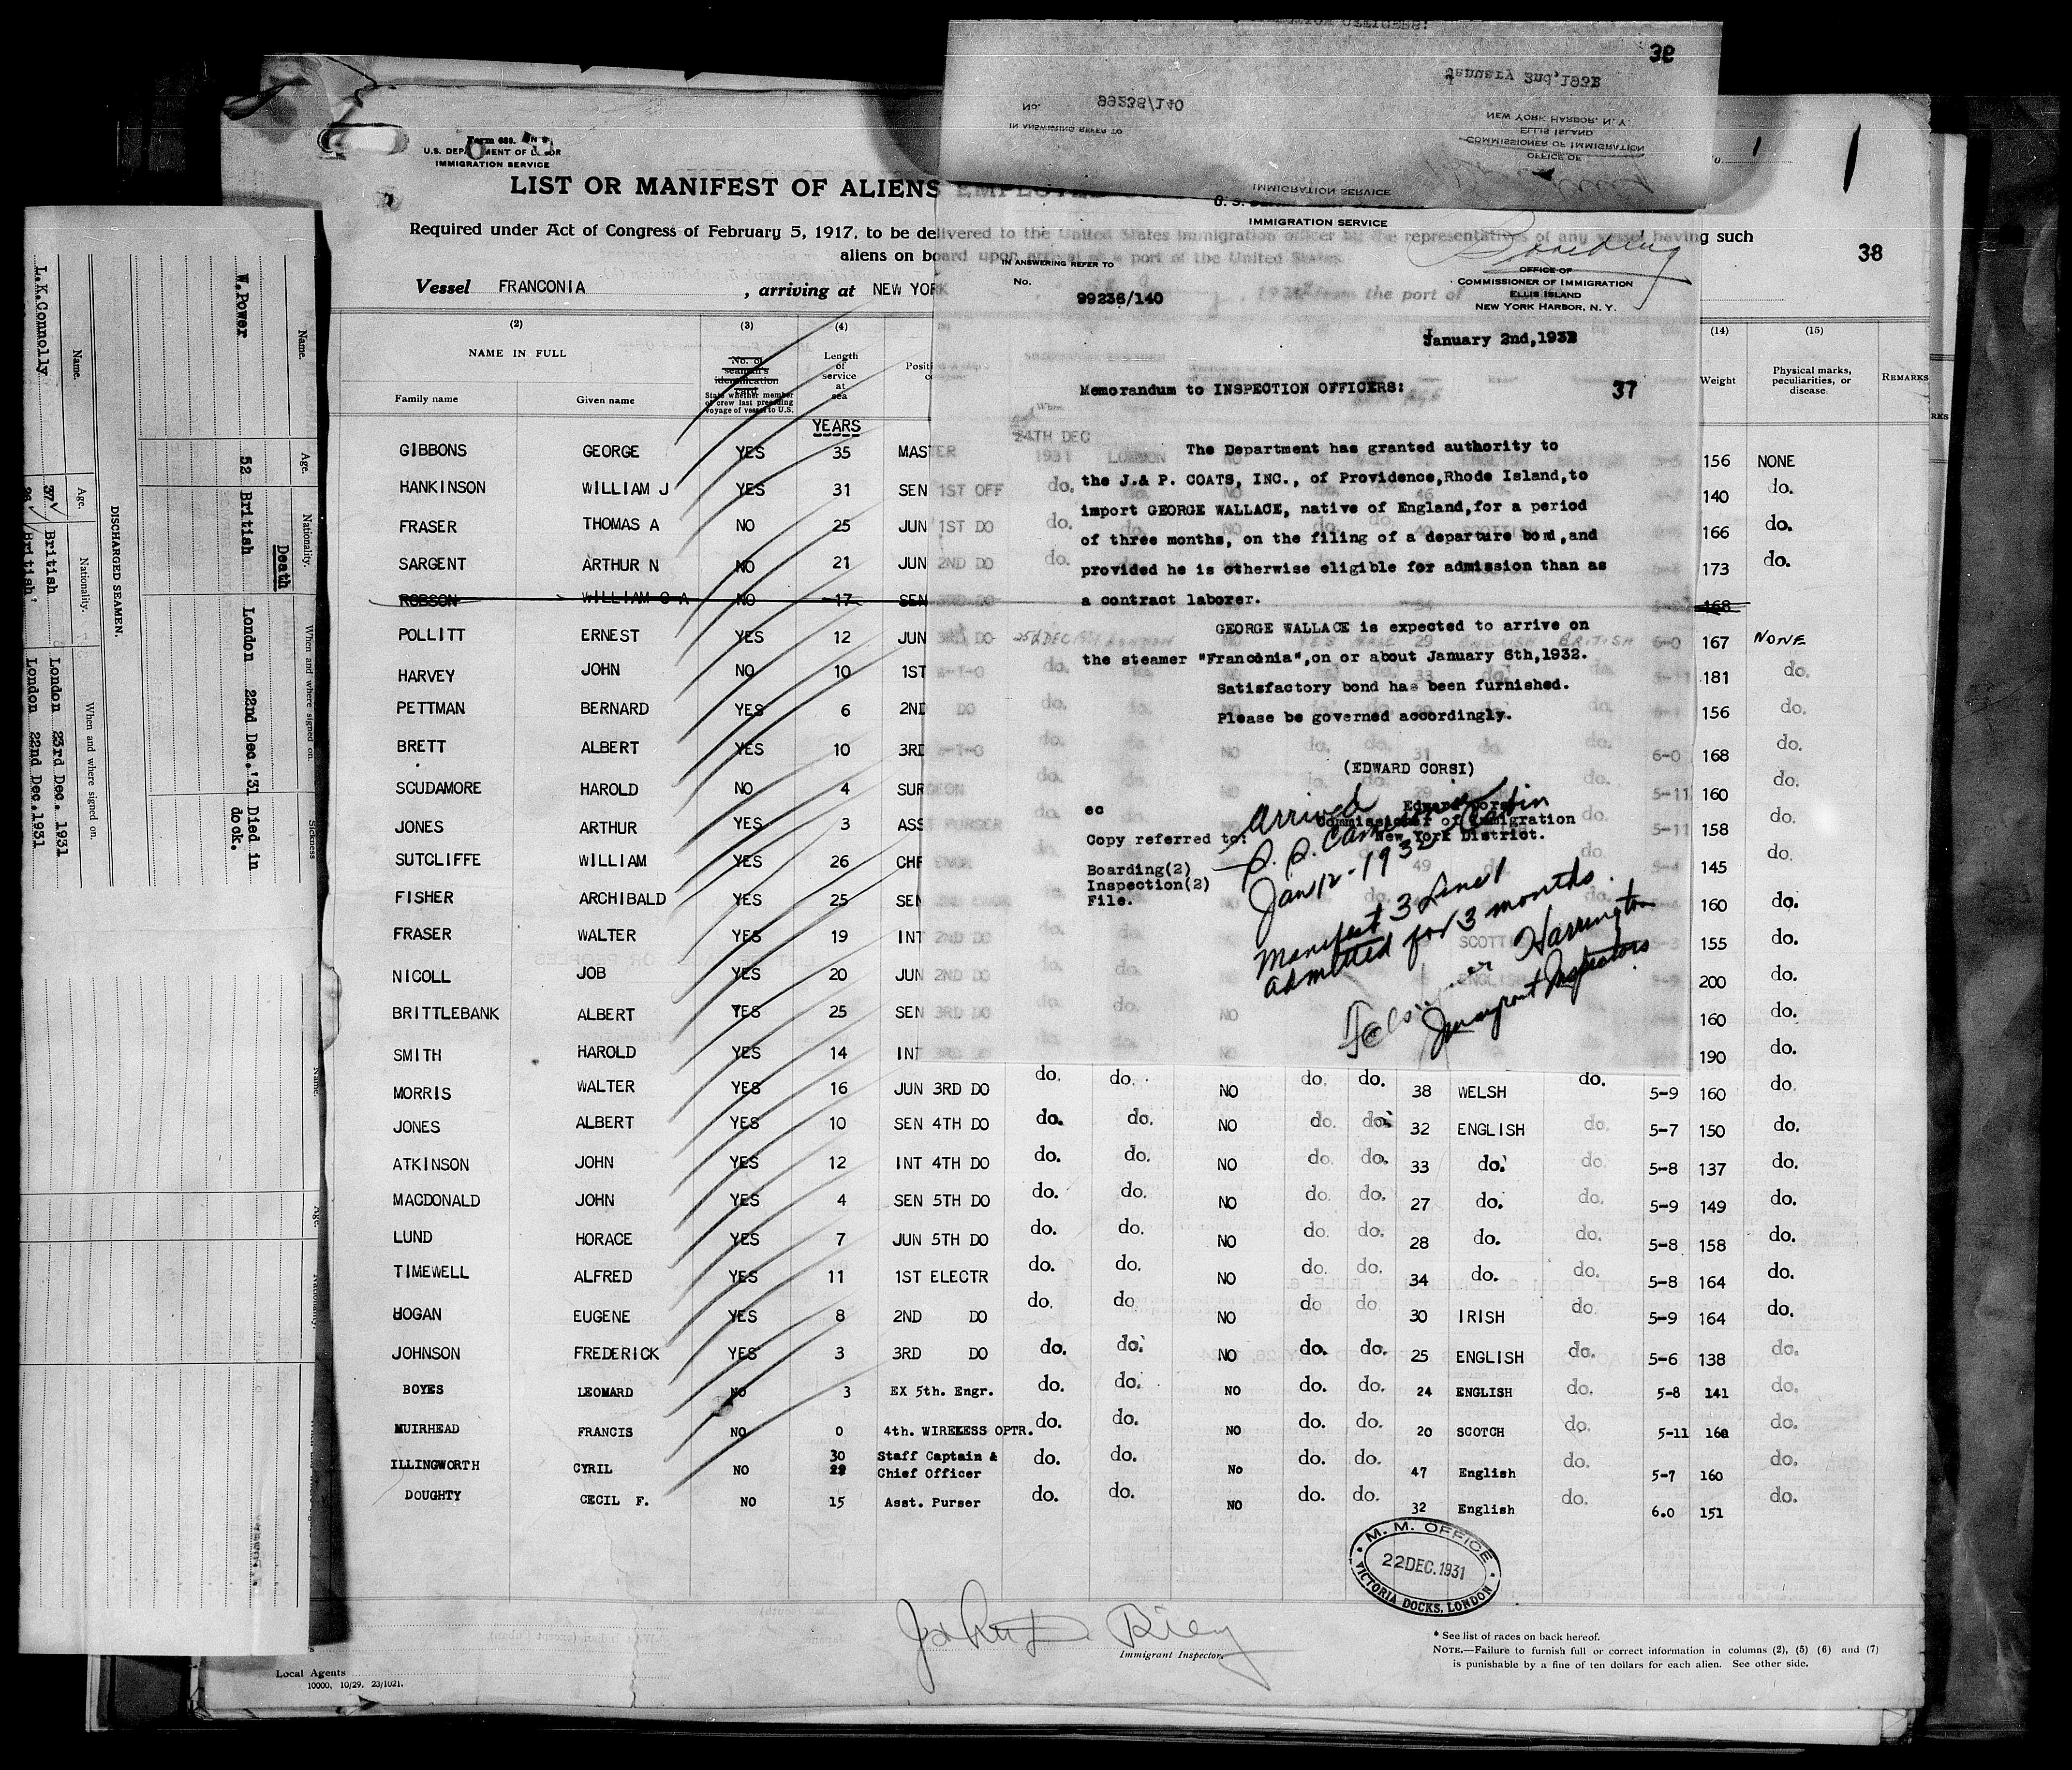 Form 680.
U.S. DEPARTMENT OF LABOR
IMMIGRATION SERVICE
LIST OR MANIFEST OF ALIENS EMPLOYED
Required under Act of Congress of February 5, 1917, to be delivered to the United States immigration officer by the representatives of any vessel having such
aliens on board upon arrival at a port of the United States
Vessel FRANCONIA , arriving at NEW YORK , 193 from the port of
1
38
(2) (3) (4) (14) (15)
NAME IN FULL
Family name Given name
No. of seaman's identification card
State whether member of crew last preceding voyage of vessel to U.S.
Length of service at sea
Weight
Physical marks, peculiarities, or disease
REMARKS
YEARS
GIBBONS GEORGE YES 35 MASTER 24TH DEC 1931 LONDON 156 NONE
HANKINSON WILLIAM J YES 31 SEN 1ST OFF do. 46 140 do.
FRASER THOMAS A NO 25 JUN 1ST DO do. 40 SCOTTISH 166 do.
SARGENT ARTHUR N NO 21 JUN 2ND DO do. 173 do.
ROBSON WILLIAM G A NO 17 SEN 3RD DO 168
POLLITT ERNEST YES 12 JUN 3RD DO 29 ENGLISH BRITISH 6-0 167 NONE
HARVEY JOHN NO 10 1ST do. 33 181 do.
PETTMAN BERNARD YES 6 2ND DO do. 156 do.
BRETT ALBERT YES 10 3RD do. NO do. do. 31 do. 6-0 168 do.
SCUDAMORE HAROLD NO 4 SURGEON do. 29 do. 5-11 160 do.
JONES ARTHUR YES 3 ASST PURSER do. do. 5-11 158 do.
SUTCLIFFE WILLIAM YES 26 CHF ENGR do. 49 do. 5-4 145 do.
FISHER ARCHIBALD YES 25 SEN do. 160 do.
FRASER WALTER YES 19 INT 2ND DO do. do. SCOTTISH 155 do.
NICOLL JOB YES 20 JUN 2ND DO do. do. ENGLISH 200 do.
BRITTLEBANK ALBERT YES 25 SEN 3RD DO do. do. NO 160 do.
SMITH HAROLD YES 14 INT 190 do.
MORRIS WALTER YES 16 JUN 3RD DO do. do. NO do. do. 38 WELSH do. 5-9 160 do.
JONES ALBERT YES 10 SEN 4TH DO do. do. NO do. do. 32 ENGLISH do. 5-7 150 do.
ATKINSON JOHN YES 12 INT 4TH DO do. do. NO do. do. 33 do. do. 5-8 137 do.
MACDONALD JOHN YES 4 SEN 5TH DO do. do. NO do. do. 27 do. do. 5-9 149 do.
LUND HORACE YES 7 JUN 5TH DO do. do. NO do. do. 28 do. do. 5-8 158 do.
TIMEWELL ALFRED YES 11 1ST ELECTR do. do. NO do. do. 34 do. do. 5-8 164 do.
HOGAN EUGENE YES 8 2ND DO do. do NO do do. 30 IRISH do. 5-9 164 do.
JOHNSON FREDERICK YES 3 3RD DO do. do. NO do. do. 25 ENGLISH do. 5-6 138 do.
BOYES LEONARD NO 3 EX 5th. Engr. do. do. NO do. do. 24 ENGLISH do. 5-8 141 do.
MUIRHEAD FRANCIS NO 0 4th. WIRELESS OPTR. do. do. NO do. do. 20 SCOTCH do. 5-11 160 do.
ILLINGWORTH CYRIL NO 30 Staff Captain & Chief Officer do. do. No do. do. 47 English do. 5-7 160 do.
DOUGHTY CECIL F. NO 15 Asst. Purser do. do. NO do. do. 32 English do. 6.0 151 do.
M. M. OFFICE
22 DEC. 1931
VICTORIA DOCKS, LONDON
Immigrant Inspector.
* See list of races on back hereof.
NOTE.—Failure to furnish full or correct information in columns (2), (5) (6) and (7)
is punishable by a fine of ten dollars for each alien. See other side.
Local Agents
10000, 10/29. 23/1021.
IMMIGRATION SERVICE
Boarding
OFFICE OF
COMMISSIONER OF IMMIGRATION
ELLIS ISLAND
NEW YORK HARBOR, N. Y.
IN ANSWERING REFER TO
No.
99236/140
January 2nd,1932
Memorandum to INSPECTION OFFICERS: 37
The Department has granted authority to
the J.& P. COATS, INC., of Providence,Rhode Island,to
import GEORGE WALLACE, native of England,for a period
of three months, on the filing of a departure bond,and
provided he is otherwise eligible for admission than as
a contract laborer.
GEORGE WALLACE is expected to arrive on
the steamer "Franconia",on or about January 6th,1932.
Satisfactory bond has been furnished.
Please be governed accordingly.
(EDWARD CORSI)
Edward Corsi
Commissioner of Immigration
New York District.
ec
Copy referred to:
Boarding(2)
Inspection(2)
File.
Arrived
Jan 12-1932
Manifest 3 Line 1
admitted for 3 months.
Harrington
Immigrant Inspectors
38
January 2nd,1932
OFFICE OF
COMMISSIONER OF IMMIGRATION
ELLIS ISLAND
NEW YORK HARBOR, N. Y.
IN ANSWERING REFER TO
No. 99236/140
IMMIGRATION SERVICE
DISCHARGED SEAMEN.
Name. Age. Nationality. When and where signed on.
L.K.Connolly 37 British London 23rd Dec. 1931
British London 22nd Dec.1931
Death
Name. Age. Nationality. When and where signed on. Sickness
W.Power 52 British London 22nd Dec.'31 Died in dock.